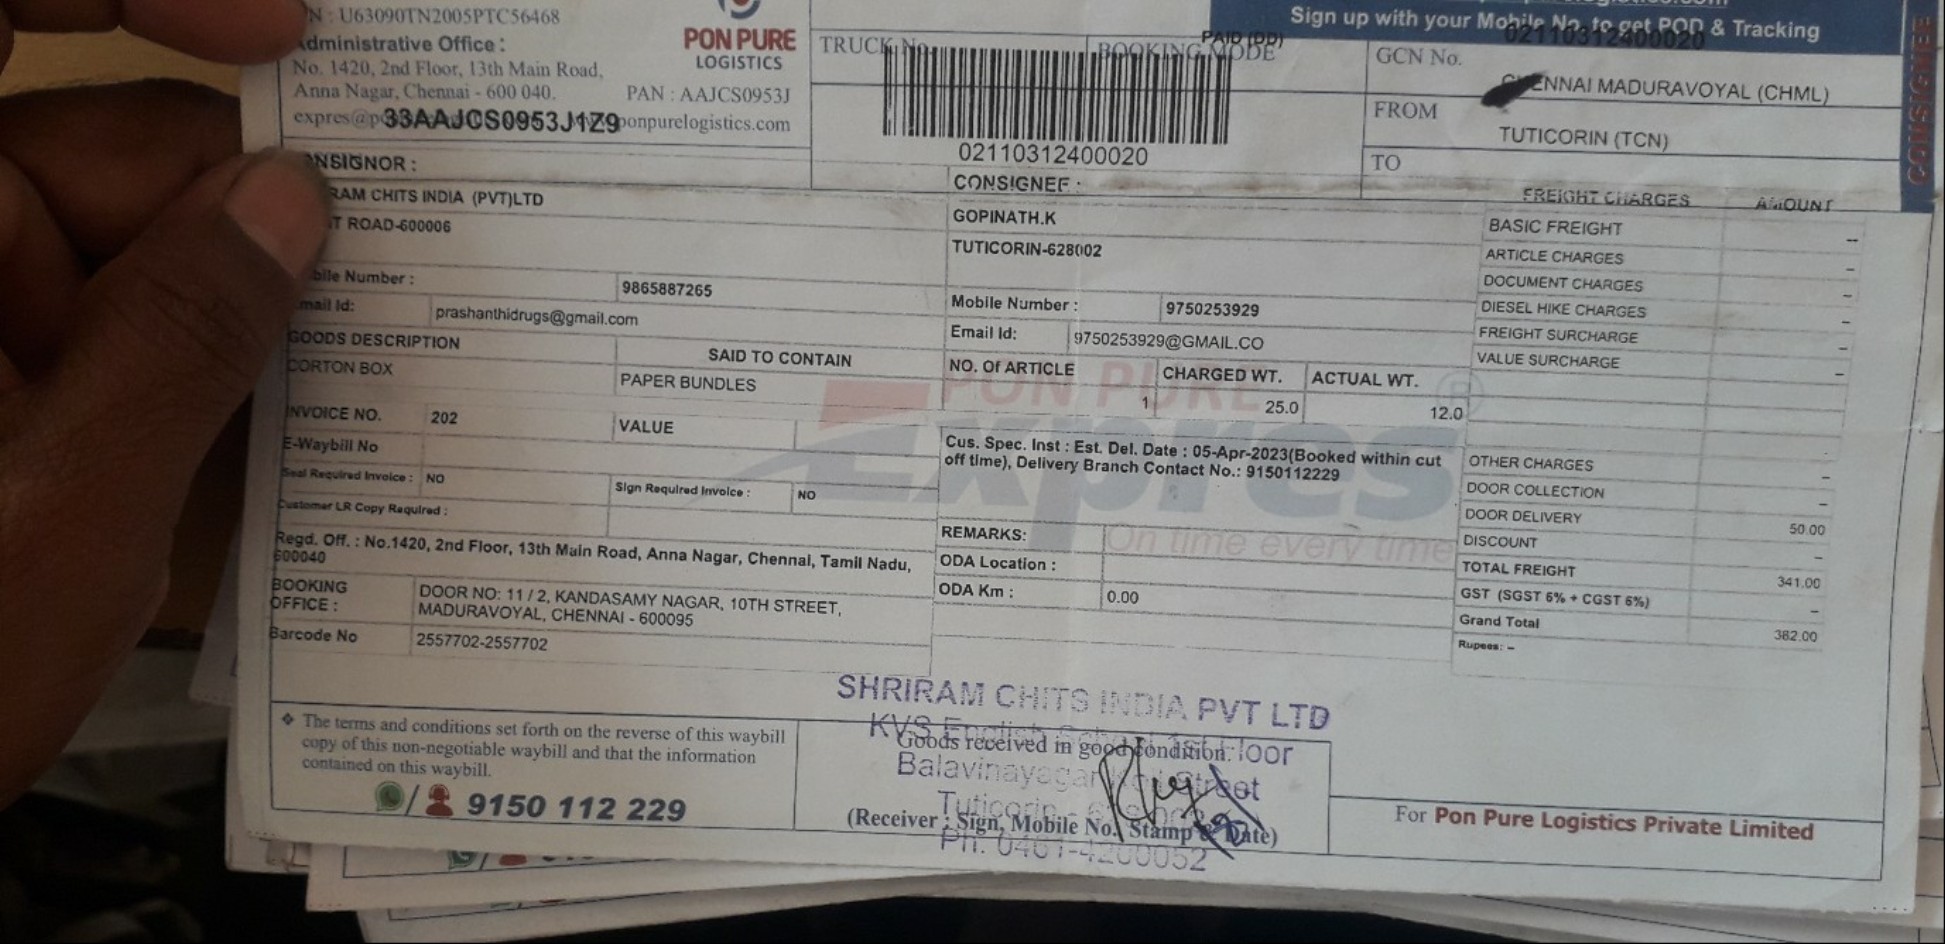 N : U63090TN2005PTC56468
Administrative Office :
No. 1420, 2nd Floor, 13th Main Road,
Anna Nagar, Chennai - 600 040.
PAN : AAJCS0953J
expres@p
33AAJCS0953J1Z9
ponpurelogistics.com
PON PURE
LOGISTICS
TRUCK No.
BOOKING MODE
PAID (DD)
02110312400020
Sign up with your Mobile No. to get POD & Tracking
GCN No.
02110312400020
FROM
ENNAI MADURAVOYAL (CHML)
TO
TUTICORIN (TCN)
CONSIGNEE
NSIGNOR :
RAM CHITS INDIA (PVT)LTD
T ROAD-600006
bile Number :
9865887265
mail Id:
prashanthidrugs@gmail.com
CONSIGNEE :
GOPINATH.K
TUTICORIN-628002
Mobile Number :
9750253929
Email Id:
9750253929@GMAIL.CO
GOODS DESCRIPTION
SAID TO CONTAIN
NO. Of ARTICLE
CHARGED WT.
ACTUAL WT.
CORTON BOX
PAPER BUNDLES
1
25.0
12.0
INVOICE NO.
202
VALUE
E-Waybill No
Seal Required Invoice :
NO
Sign Required Invoice :
NO
Customer LR Copy Required :
Cus. Spec. Inst : Est. Del. Date : 05-Apr-2023(Booked within cut
off time), Delivery Branch Contact No.: 9150112229
PON PURE
Expres
®
On time every time
REMARKS:
ODA Location :
ODA Km :
0.00
Regd. Off. : No.1420, 2nd Floor, 13th Main Road, Anna Nagar, Chennai, Tamil Nadu,
600040
BOOKING
OFFICE :
DOOR NO: 11 / 2, KANDASAMY NAGAR, 10TH STREET,
MADURAVOYAL, CHENNAI - 600095
Barcode No
2557702-2557702
FREIGHT CHARGES
AMOUNT
BASIC FREIGHT
--
ARTICLE CHARGES
--
DOCUMENT CHARGES
--
DIESEL HIKE CHARGES
--
FREIGHT SURCHARGE
--
VALUE SURCHARGE
--
OTHER CHARGES
--
DOOR COLLECTION
--
DOOR DELIVERY
50.00
DISCOUNT
--
TOTAL FREIGHT
341.00
GST (SGST 6% + CGST 6%)
--
Grand Total
382.00
Rupees: --
❖ The terms and conditions set forth on the reverse of this waybill
copy of this non-negotiable waybill and that the information
contained on this waybill.
9150 112 229
SHRIRAM CHITS INDIA PVT LTD
KVS English School Floor
Goods received in good condition.
Balavinayagar Street
Tuticorin
(Receiver : Sign, Mobile No., Stamp & Date)
Ph: 0461-4200052
For Pon Pure Logistics Private Limited